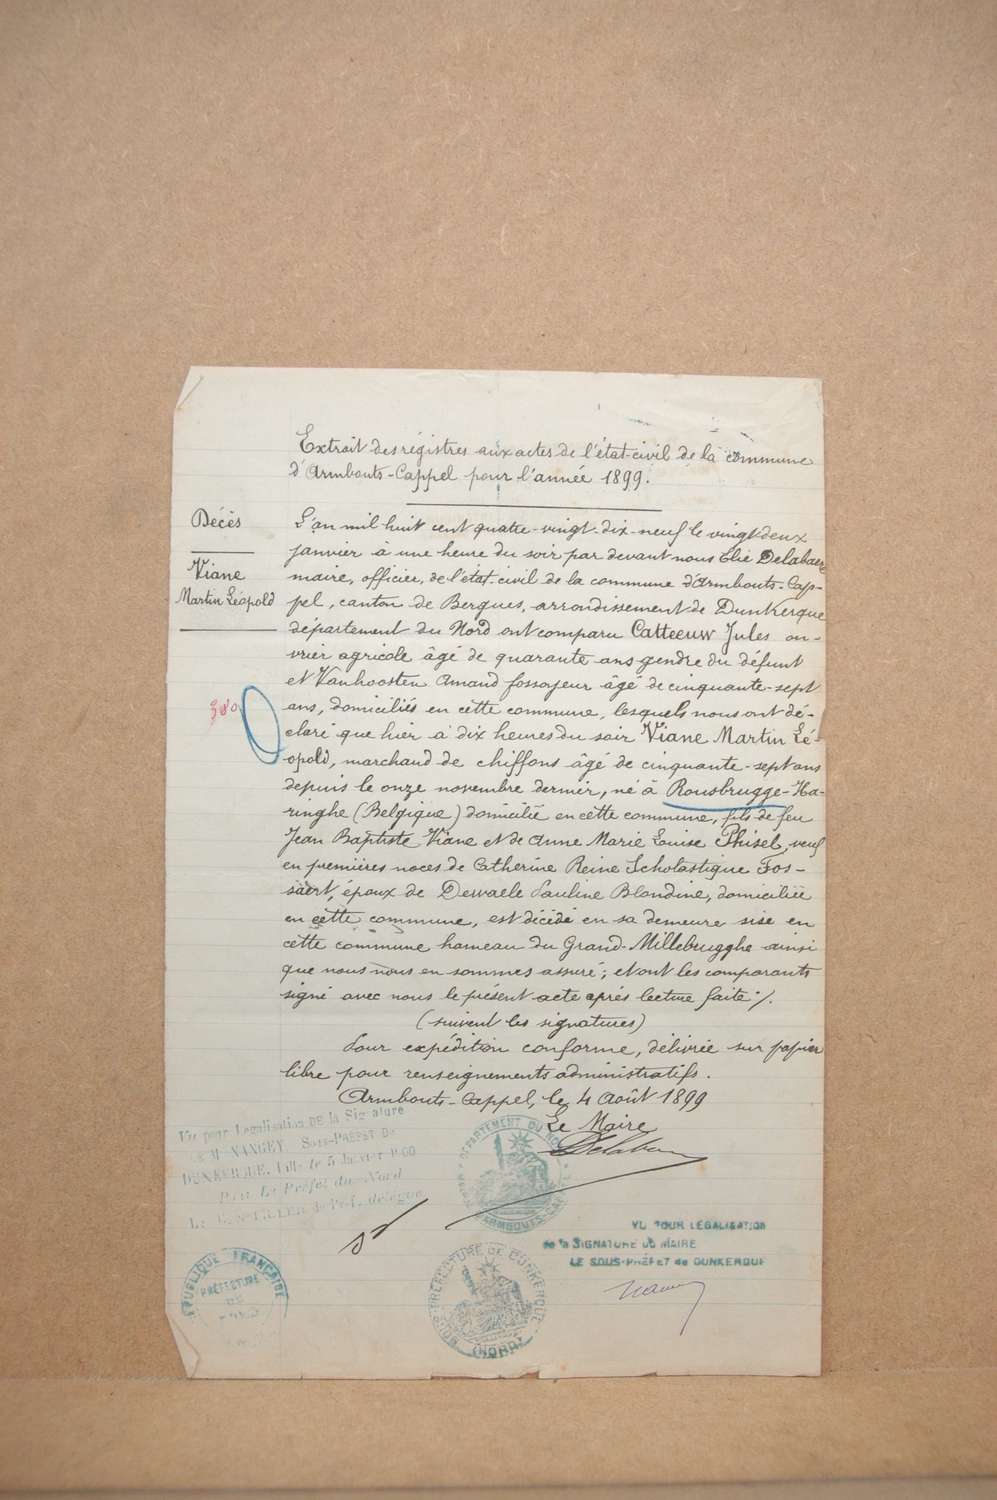 Extrait des régistres aux actes de l'état-civil de la commune
d'Armbouts-Cappel pour l'année 1899.
Décès
Viane
Martin Léopold
L'an mil huit cent quatre-vingt-dix-neuf le vingt-deux
janvier à une heure du soir par devant nous Elie Delabaere
maire, officier, de l'état-civil de la commune d'Armbouts-Cap-
pel, canton de Bergues, arrondissement de Dunkerque
département du Nord ont comparu Catteeuw Jules ou-
vrier agricole âgé de quarante ans gendre du défunt
et Vanhoosten Amand fossoyeur âgé de cinquante-sept
ans, domiciliés en cette commune, lesquels nous ont dé-
claré que hier à dix heures du soir Viane Martin Lé-
opold, marchand de chiffons âgé de cinquante-sept ans
depuis le onze novembre dernier, né à Rousbrugge-Ha-
ringhe (Belgique) domicilié en cette commune, fils de feu
Jean Baptiste Viane et de Anne Marie Louise Phisel, veuf
en premières noces de Catherine Reine Scholastique Fos-
saert, époux de Dewaele Pauline Blondine, domiciliée
en cette commune, est décédé en sa demeure sise en
cette commune hameau du Grand-Millebrugghe ainsi
que nous nous en sommes assuré; et ont les comparants
signé avec nous le présent acte après lecture faite ./.
(suivent les signatures)
Pour expédition conforme, délivrée sur papier
libre pour renseignements administratifs.
Armbouts-Cappel, le 4 Août 1899
Le Maire
Delabaere
Vu pour Légalisation DE la Signature
de M. NANCEY, Sous-PRÉFET De
DUNKERQUE, Lille le 5 Janvier 1900
Pour Le Préfet du Nord
Le CONSEILLER de Préf. délégué
DÉPARTEMENT DU NORD
ARMBOUTS-CAPPEL
VU POUR LÉGALISATION
de la SIGNATURE DU MAIRE
LE SOUS-PRÉFET de DUNKERQUE
RÉPUBLIQUE FRANÇAISE
PRÉFECTURE
SOUS-PRÉFECTURE DE DUNKERQUE
(NORD)